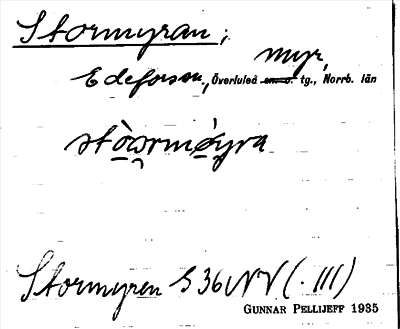 Stormyran;
myr,
Edeforsen, Överluleå sn. o. tg., Norrb. län
stò̱o̱rmó̱yra
Stormyren S 36 NV (. III)
GUNNAR PELLIJEFF 1935